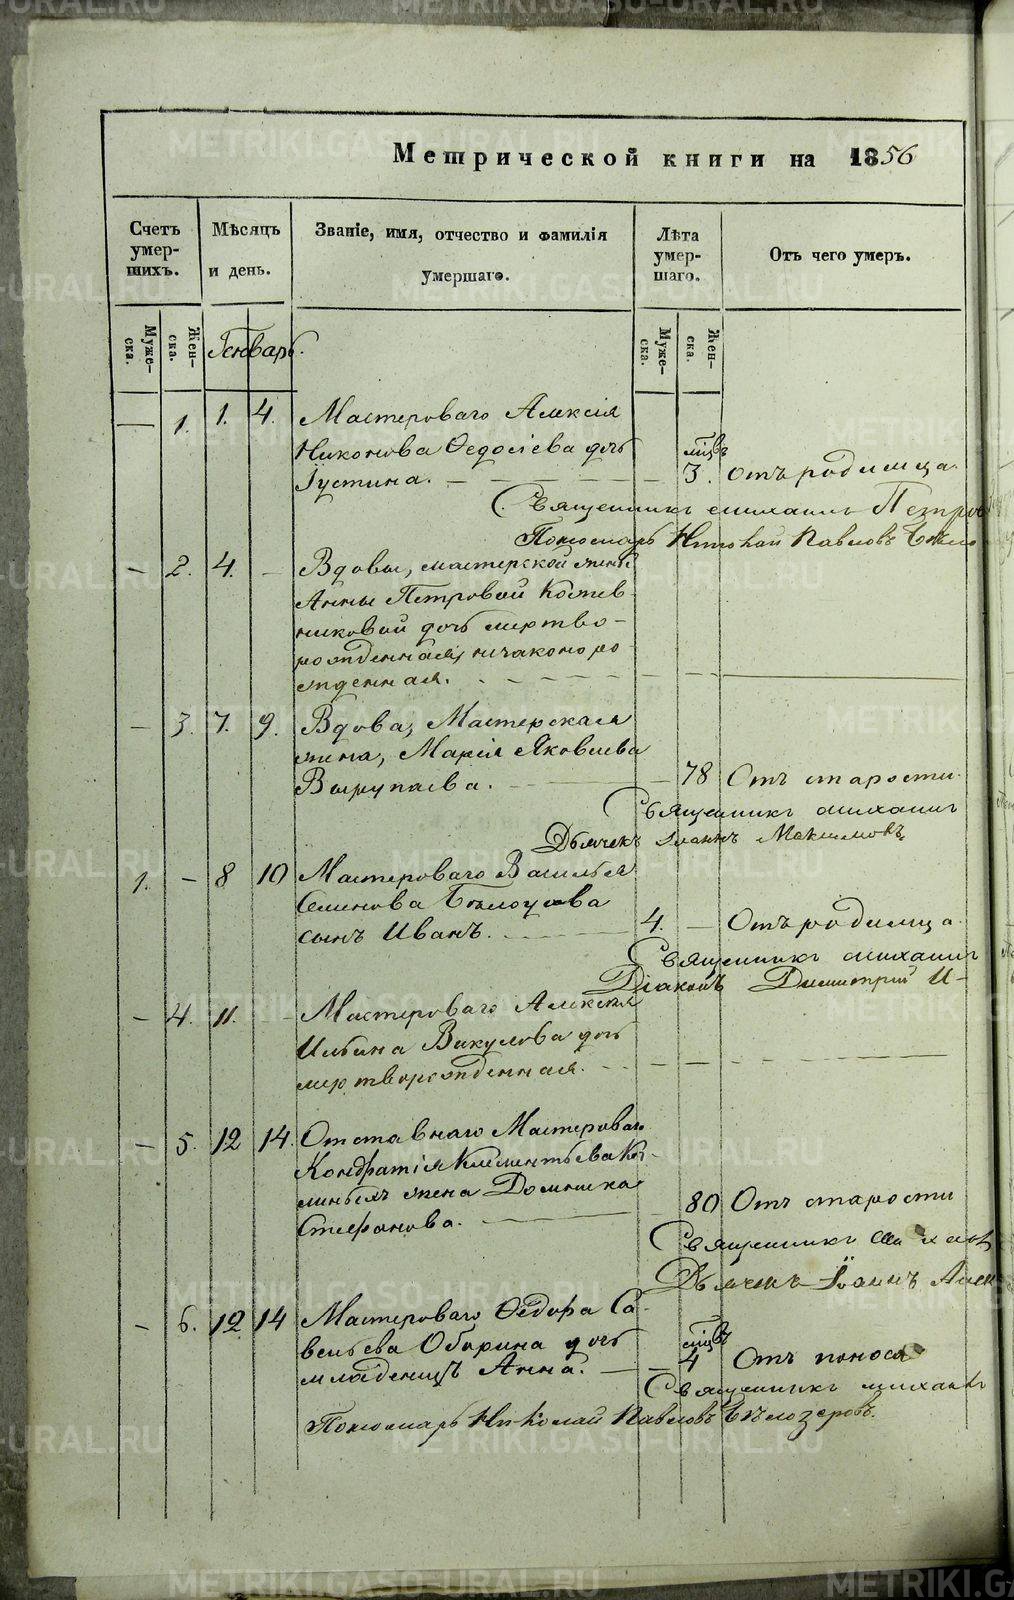 Метрической книги на 1856
Счетъ умер-шихъ.
Мѣсяцъ и день.
Званіе, имя, отчество и фамилія умершаго.
Лѣта умер-шаго.
Отъ чего умеръ.
Муже-ска.
Жен-ска.
Генварь.
Муже-ска.
Жен-ска.
— 1. 1. 4. Мастероваго Алексія
Никонова Федосіева дочь мѣсв
Іустина. — 3. Отъ родимца.
Священникъ Михаилъ Петро
Пономарь Николай Павловъ Бѣло
— 2. 4. — Вдовы, мастерской жены
Анны Петровой Кожев-
никовой дочь мертво-
рожденная, незаконоро-
жденная.
— 3. 7. 9. Вдова, Мастерская
жена, Марія Яковлева
Вырупаева. — 78 Отъ старости.
Священникъ Михаилъ
Дьячекъ Іоаннъ Максимовъ
1. — 8 10 Мастероваго Василья
Семенова Бѣлоусова 4. — Отъ родимца.
сынъ Иванъ.
Священникъ Михаилъ
Діаконъ Димитрий И-
— 4. 11. — Мастероваго Алексія
Ильина Викулова дочь
мертворожденная.
— 5. 12 14. Отставнаго Мастероваго
Кондратія Климентьева Ка-
линыхъ жена Домника 80 Отъ старости
Стефанова.
Священникъ Михаилъ
Дьячекъ Іоаннъ
— 6. 12 14 Мастероваго Федора Са-
вельева Оборина дочь мѣсв
младенецъ Анна. — 4 Отъ поноса
Священникъ Михаилъ
Пономарь Николай Павловъ Бѣлозеровъ.
METRIKI.GASO-URAL.RU